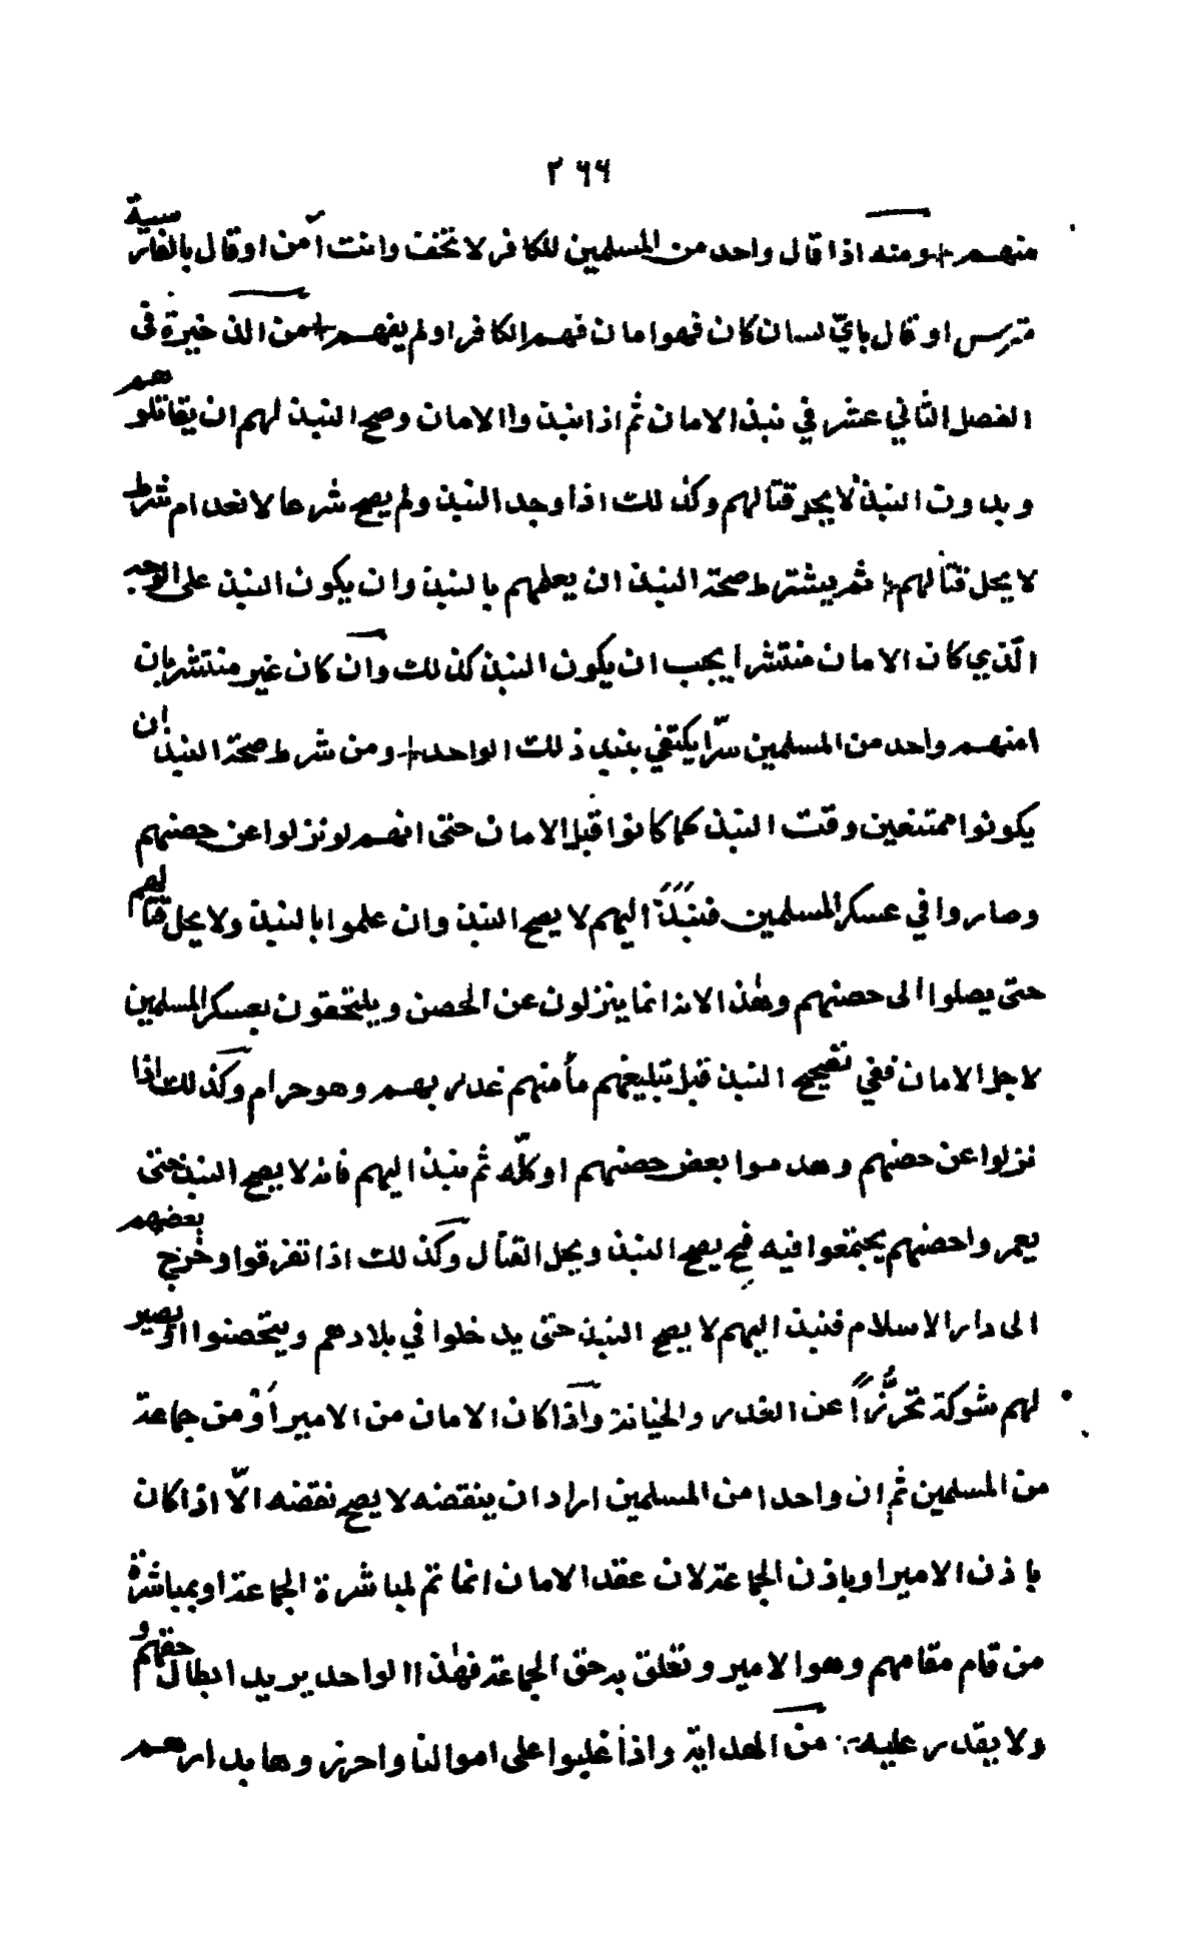 ٢٦٦
منهم + ومنه اذا قال واحد من المسلمين للكافر لا تخف وانت آمن او قال بالفارسية
مترس او قال باىّ لسان كان فهو امان فهم الكافر او لم يفهم + من الذخيرة فى
الفصل الثاني عشر في نبذ الامان ثم اذا نبذوا الامان وصح النبذ لهم ان يقاتلوهم
وبدون النبذ لا يجوز قتالهم وكذلك اذا وجد النبذ ولم يصح شرعا لانعدام شرط
لا يحل قتالهم + ثم يشترط صحة النبذ ان يعلمهم بالنبذ وان يكون النبذ على الوجه
الّذي كان الامان منتشرا يجب ان يكون النبذ كذلك وان كان غير منتشر بان
امنهم واحد من المسلمين سرّا يكتفي بنبذ ذلك الواحد + ومن شرط صحة النبذ ان
يكونوا ممتنعين وقت النبذ كما كانوا قبل الامان حتى انهم لو نزلوا عن حصنهم
وصاروا في عسكر المسلمين فنبذ اليهم لا يصح النبذ وان علموا بالنبذ ولا يحل قتالهم
حتى يصلوا الى حصنهم وهٰذا لانه انما ينزلون عن الحصن ويلتحقون بعسكر المسلمين
لاجل الامان ففي تصحيح النبذ قبل تبليغهم مأمنهم غدر بهم وهو حرام وكذلك اذا
نزلوا عن حصنهم وهدموا بعض حصنهم او كلّه ثم نبذ اليهم فانه لا يصح النبذ حتى
يعمروا حصنهم يجتمعوا فيه فح يصح النبذ ويحل القتال وكذلك اذا تفرقوا وخرج بعضهم
الى دار الاسلام فنبذ اليهم لا يصح النبذ حتى يدخلوا في بلادهم ويتحصنوا او يصير
لهم شوكة تحرُّزاً عن الغدر والخيانة واذا كان الامان من الامير أو من جماعة
من المسلمين ثم ان واحدا من المسلمين اراد ان ينقضه لا يصح نقضه الّا اذا كان
باذن الامير او باذن الجماعة لان عقد الامان انما تم لمباشرة الجماعة او بمباشرة
من قام مقامهم وهو الامير وتعلق به حق الجماعة فهٰذا الواحد يريد ابطال حقهم و
ولا يقدر عليه ∴ من الهداية واذا غلبوا على اموالنا واحرزوها بدارهم